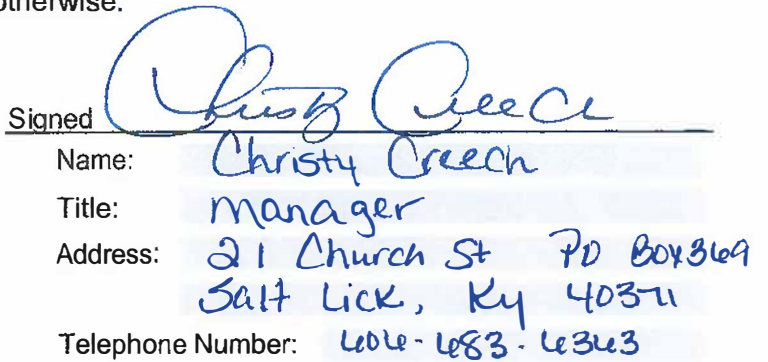 otherwise.
Signed Christy Creech
Name: Christy Creech
Title: Manager
Address: 21 Church St PO Box 369
Salt Lick, Ky 40371
Telephone Number: 606-683-6363